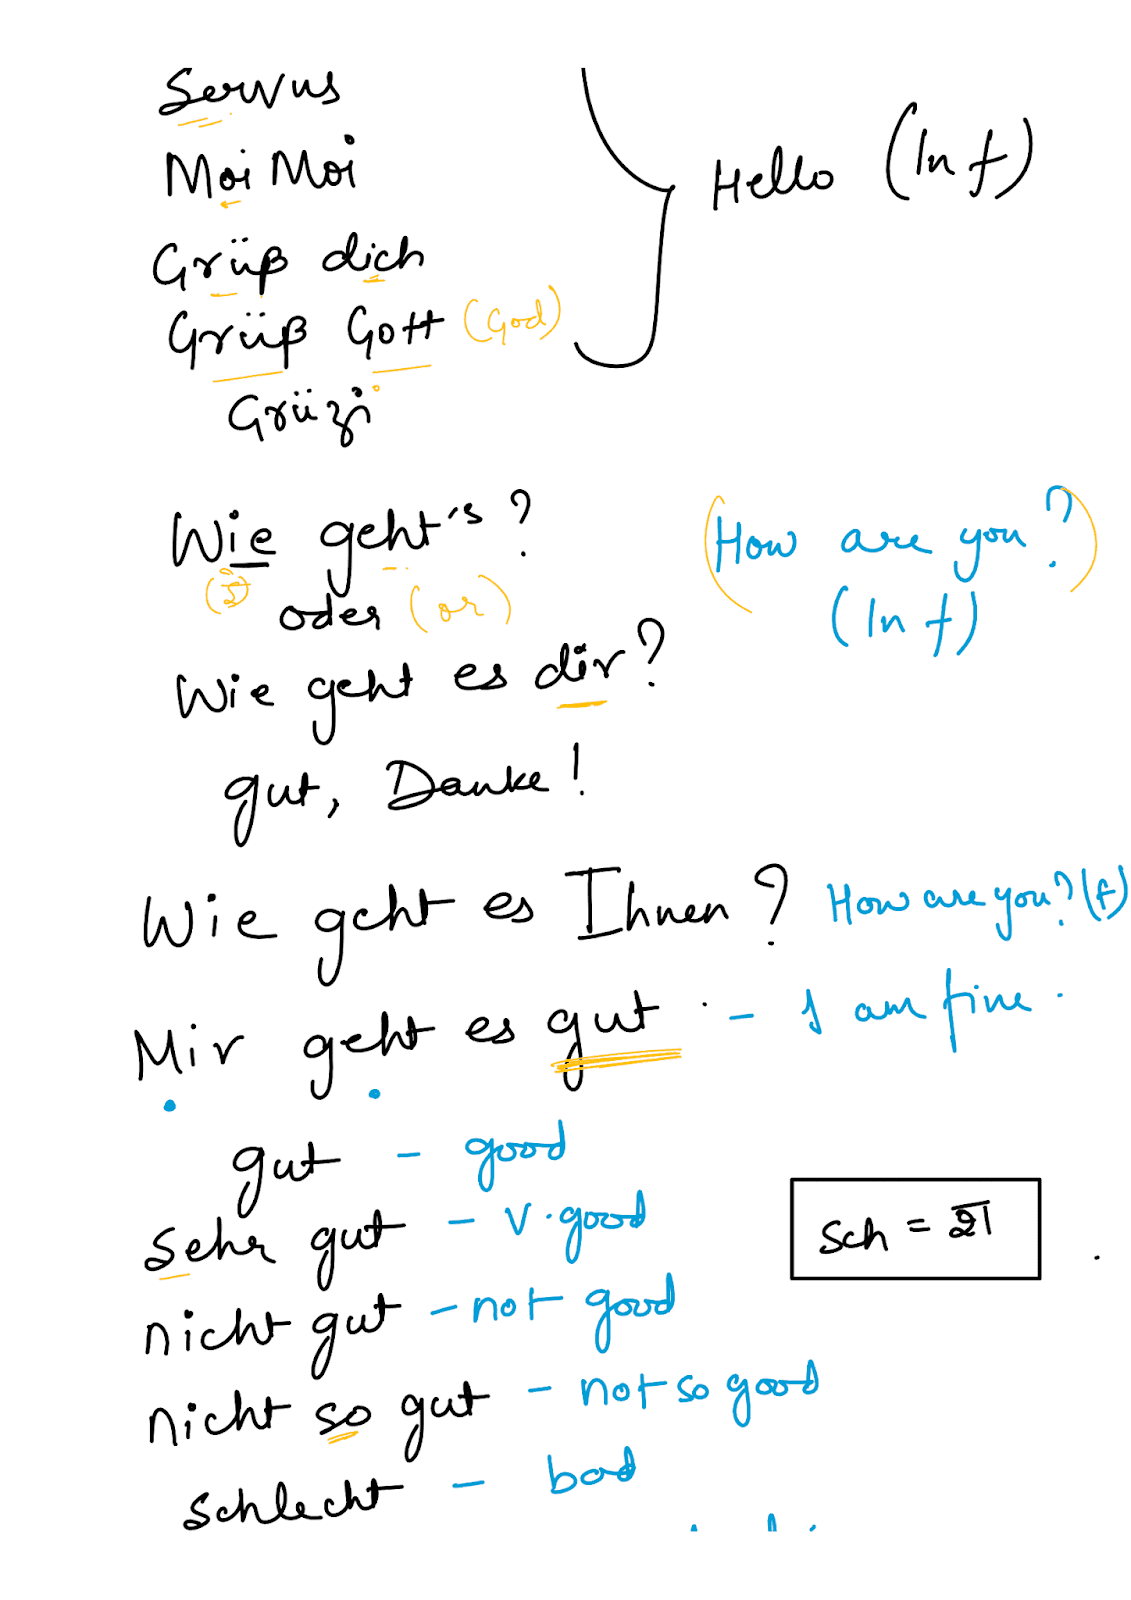 Servus
Moi Moi
Grüß dich
Hello (Inf)
Grüß Gott (God)
Grüzi
Wie geht's? (How are you?)
oder (or) (Inf)
Wie geht es dir?
gut, Danke!
Wie geht es Ihnen? How are you? (f)
Mir geht es gut. - I am fine.
gut - good
sehr gut - v.good
sch = श
nicht gut - not good
nicht so gut - not so good
schlecht - bad